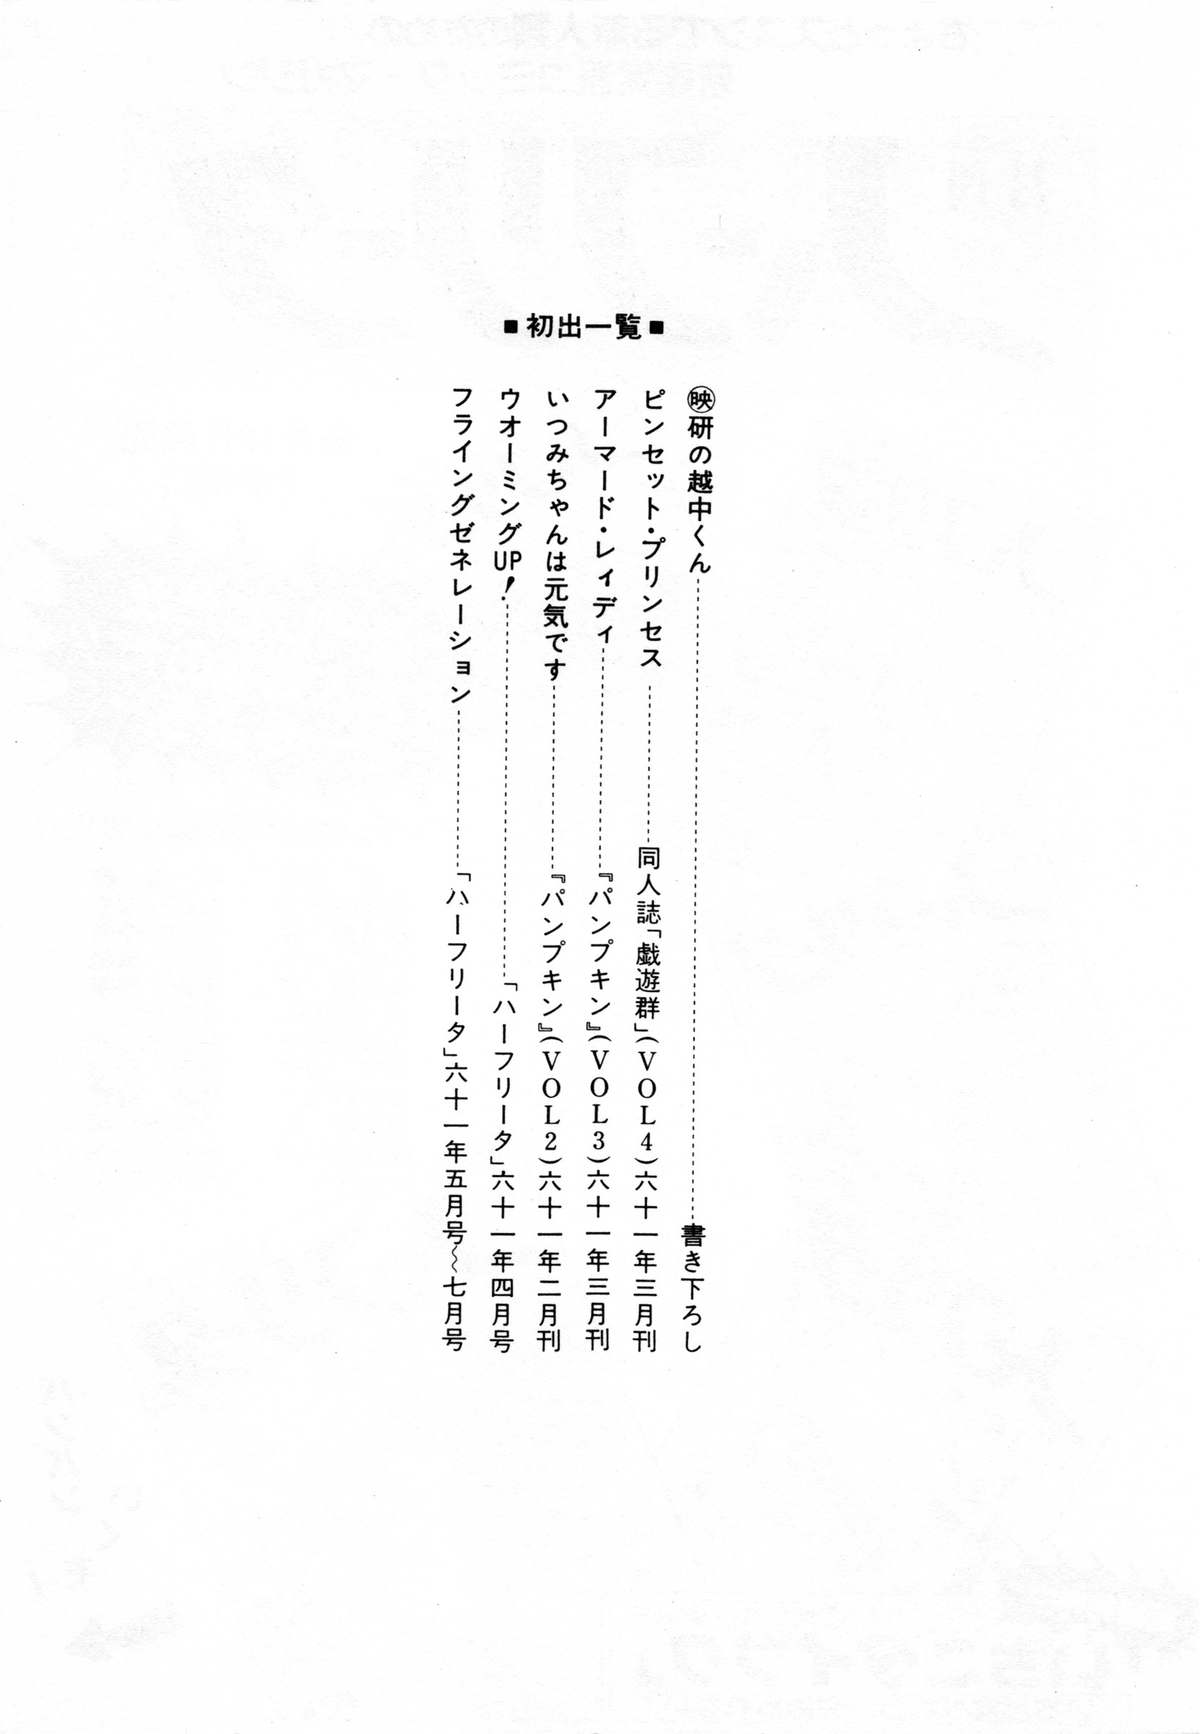 ■初出一覧■
㊌研の越中くん……書き下ろし
ピンセット・プリンセス……同人誌「戯遊群」(VOL4)六十一年三月刊
アーマード・レィディ……『パンプキン』(VOL3)六十一年三月刊
いつみちゃんは元気です……『パンプキン』(VOL2)六十一年二月刊
ウオーミングUP!……「ハーフリータ」六十一年四月号
フライングゼネレーション……「ハーフリータ」六十一年五月号〜七月号